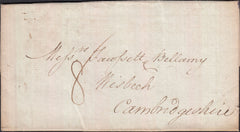 Messrs Fawssett Bellamy
8 Wisbech
Cambridgeshire